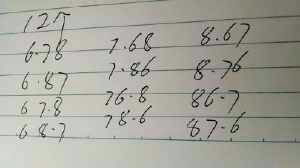 125
6.78 7.68 8.67
6.87 7.86 8.76
67.8 76.8 86.7
68.7 78.6 87.6